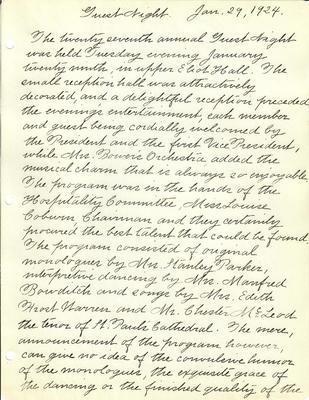 Guest Night. Jan. 29, 1924.
The twenty seventh annual Guest Night
was held Tuesday evening January
twenty ninth, in upper Eliot Hall. The
small reception hall was attractively
decorated, and a delightful reception preceded
the evenings entertainment, each member
and guest being cordially welcomed by
the President and the first Vice President,
while Mrs. Bowers Orchestra added the
musical charm that is always so enjoyable.
The program was in the hands of the
Hospitality Committee Miss Louise
Coburn Chairman and they certainly
procured the best talent that could be found.
The program consisted of original
monologues by Mrs. Hanley Parker,
interpretive dancing by Mrs. Manfred
Bowditch and songs by Mrs. Edith
Frost Warren and Mr. Chester McLeod
the tenor of St Pauls Cathedral. The mere,
announcement of the program however,
can give no idea of the convulsive humor
of the monologues, the exquisite grace of
the dancing or the finished quality of the